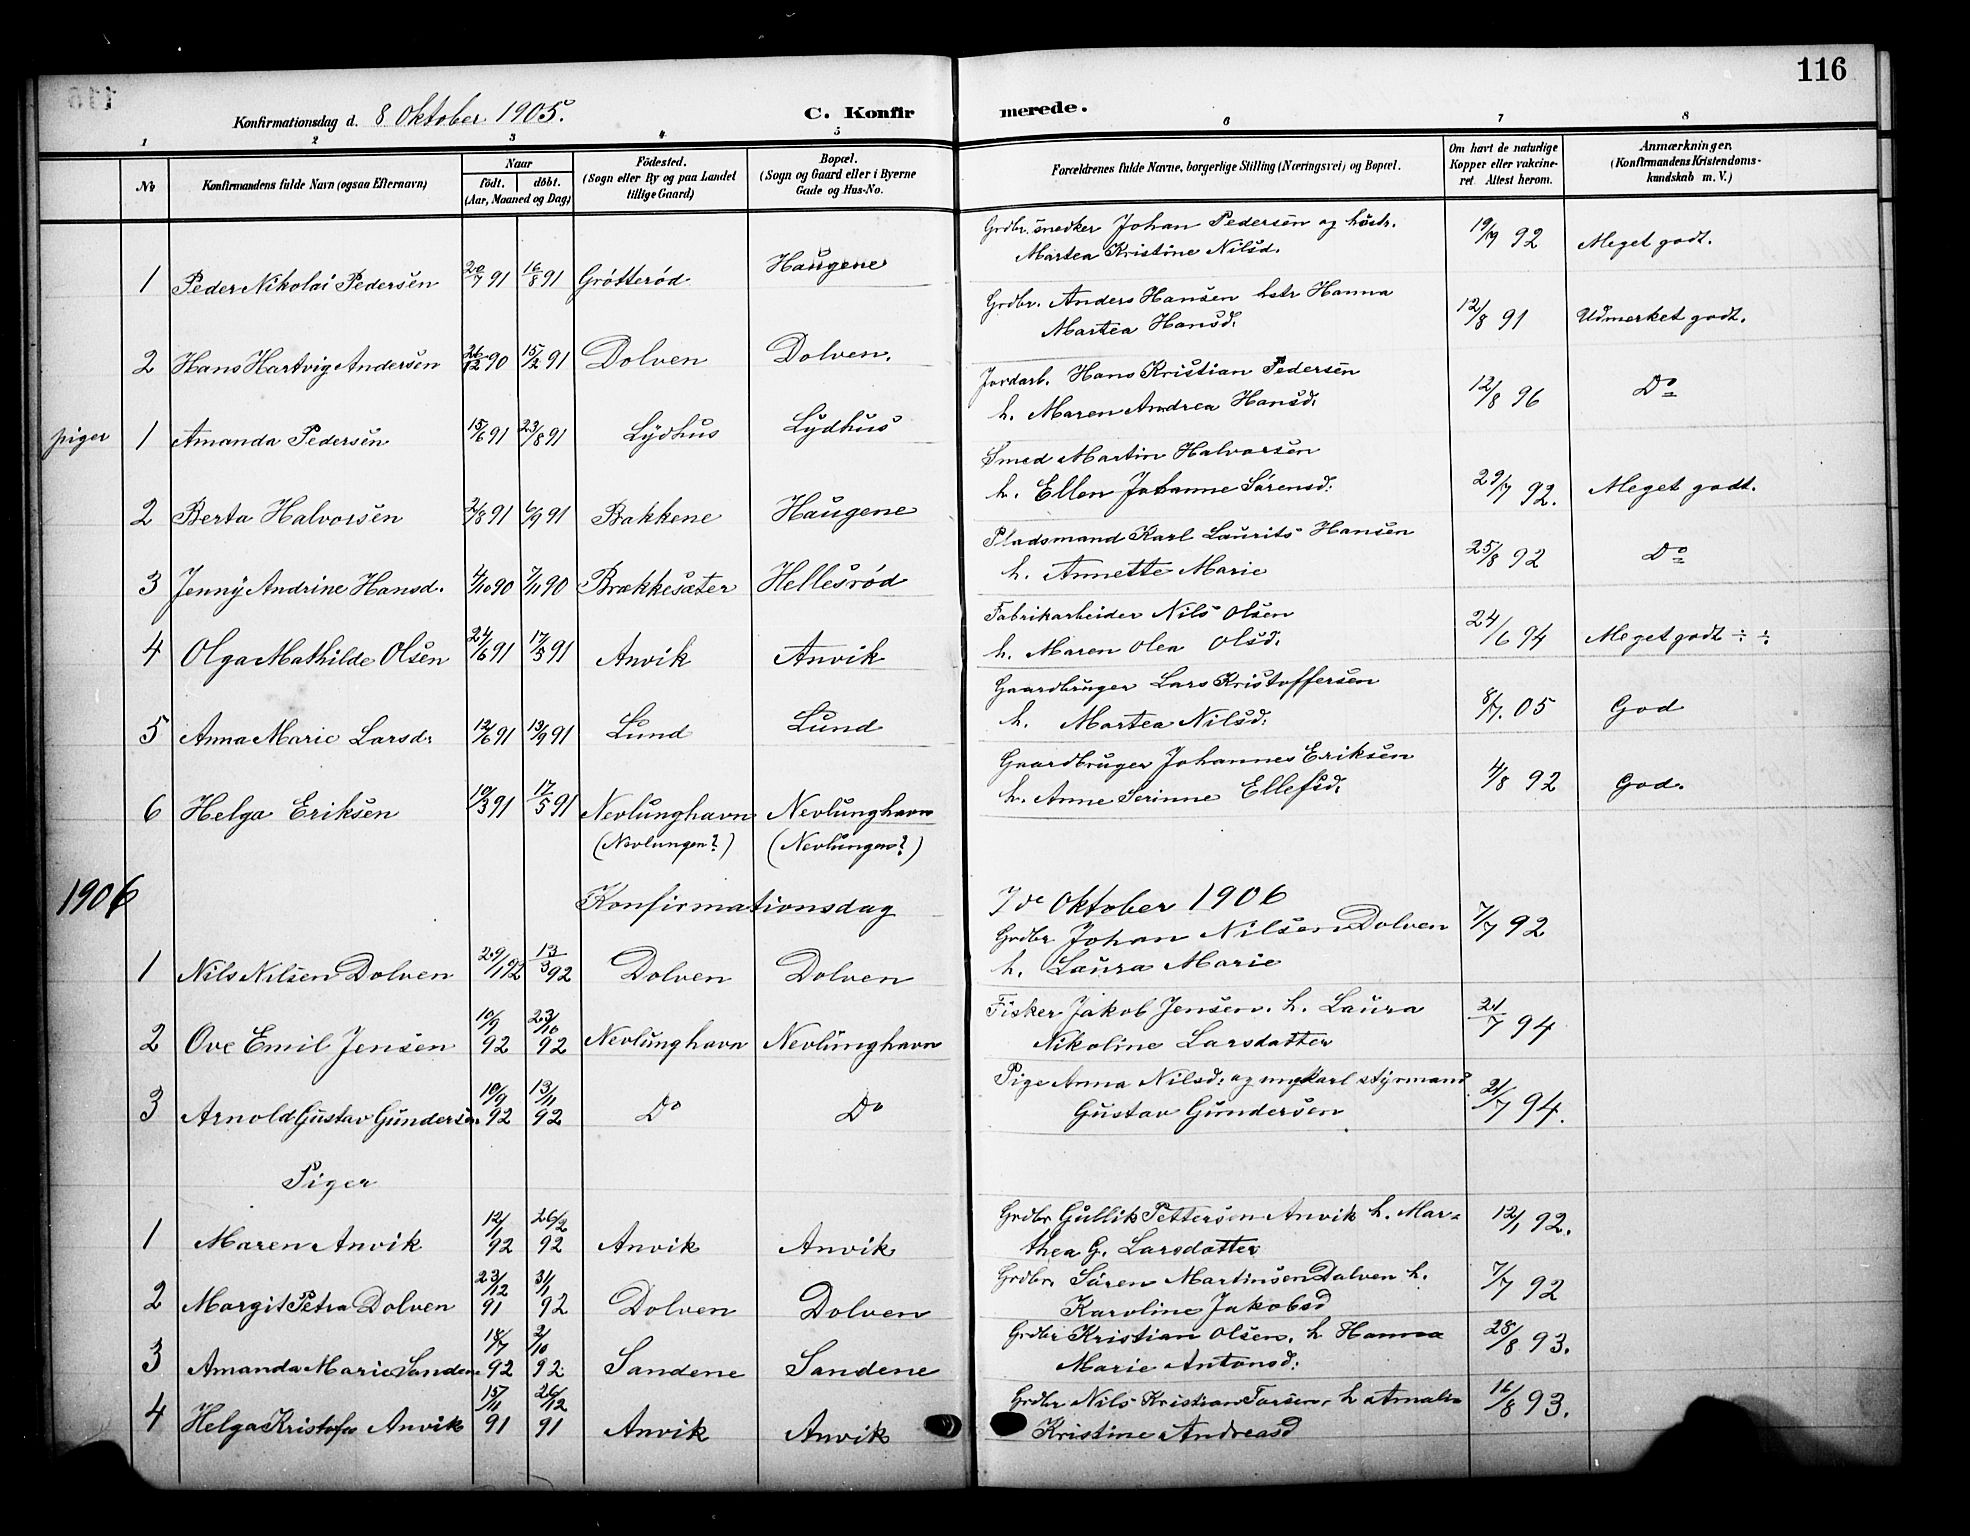 116
Konfirmationsdag d. 8 Oktober 1905.
C. Konfirmerede.
1 2 3 4 5 6 7 8
No
Konfirmandens fulde Navn (ogsaa Efternavn)
Naar
födt. döbt.
(Aar, Maaned og Dag)
Födested.
(Sogn eller By og paa Landet
tillige Gaard)
Bopæl.
(Sogn og Gaard eller i Byerne
Gade og Hus-No.
Forældrenes fulde Navne, borgerlige Stilling (Næringsvei) og Bopæl.
Om havt de naturlige
Kopper eller vakcine-
ret Attest herom.
Anmærkninger.
(Konfirmandens Kristendoms-
kundskab m. V.)
1 Peder Nikolai Pedersen 20/7 91 16/8 91 Grötteröd Haugene Grdbr. snedker Johan Pedersen og hústr. 19/9 92 Meget godt.
Martea Kristine Nilsd.
2 Hans Hartvig Andersen 26/12 90 15/2 91 Dolven Dolven. Grdbr. Anders Hansen hstr Hanna 12/8 91 Udmerket godt.
Martea Hansd.
piger 1 Amanda Pedersen 15/6 91 23/8 91 Lydhus Lydhus Jordarb. Hans Kristian Pedersen 12/8 96 Do
h. Maren Andrea Hansd.
2 Berta Halvorsen 2/8 91 6/9 91 Bakkene Haugene Smed Martin Halvorsen 29/7 92. Meget godt.
h. Ellen Johanne Sörensd.
3 Jenny Andrine Hansd. 4/10 90 7/11 90 Brækkesæter Hellesröd Pladsmand Karl Laurits Hansen 25/8 92 Do
h. Annette Marie
4 Olga Mathilde Olsen 24/6 91 17/5 91 Anvik Anvik Fabrikarbeider Nils Olsen 24/6 94 Meget godt ÷ ÷
h. Maren Olea Olsd.
5 Anna Marie Larsd. 12/6 91 13/9 91 Lund Lund Gaardbruger Lars Kristoffersen 8/7. 05 God
h. Martea Nilsd.
6 Helga Eriksen 10/3 91 17/5 91 Nevlunghavn Nevlunghavn Gaardbruger Johannes Eriksen 4/8 92 God.
h. Anne Serinne Ellefsd.
(Nevlungen?) (Nevlungen?)
1906 Konfirmationsdag 7de Oktober 1906
1 Nils Nilsen Dolven 29/1 92 13/3 92 Dolven Dolven Grdbr Johan Nilsen Dolven 7/7 92
h. Laura Marie
2 Ove Emil Jensen 10/9 92 23/10 92 Nevlunghavn Nevlunghavn Fisker Jakob Jensen. h. Laura 21/7 94
Nikoline Larsdatter
3 Arnold Gustav Gundersen 10/9 92 13/11 92 Do Do Pige Anna Nilsd. og ungkarl styrmand 21/7 94.
Gustav Gundersen
Piger
1 Maren Anvik 12/1 92 26/2 92 Anvik Anvik Grdbr Gullik Pettersen Anvik h. Mar=
thea G. Larsdatter 12/1 92.
2 Margit Petra Dolven 23/12 91 31/1 92 Dolven Dolven Grdbr Sören Martinsen Dalven h. 7/7 92
Karoline Jakobsd
3 Amanda Marie Sanden 18/7 92 2/10 92 Sandene Sandene Grdbr Kristian Olsen. h Hanna 28/8 93.
Marie Antonsd.
4 Helga Kristofa Anvik 15/11 91 26/12 91 Anvik Anvik Grdbr Nils Kristian Torsen, h Amalie 16/8 93.
Kristine Andreasd